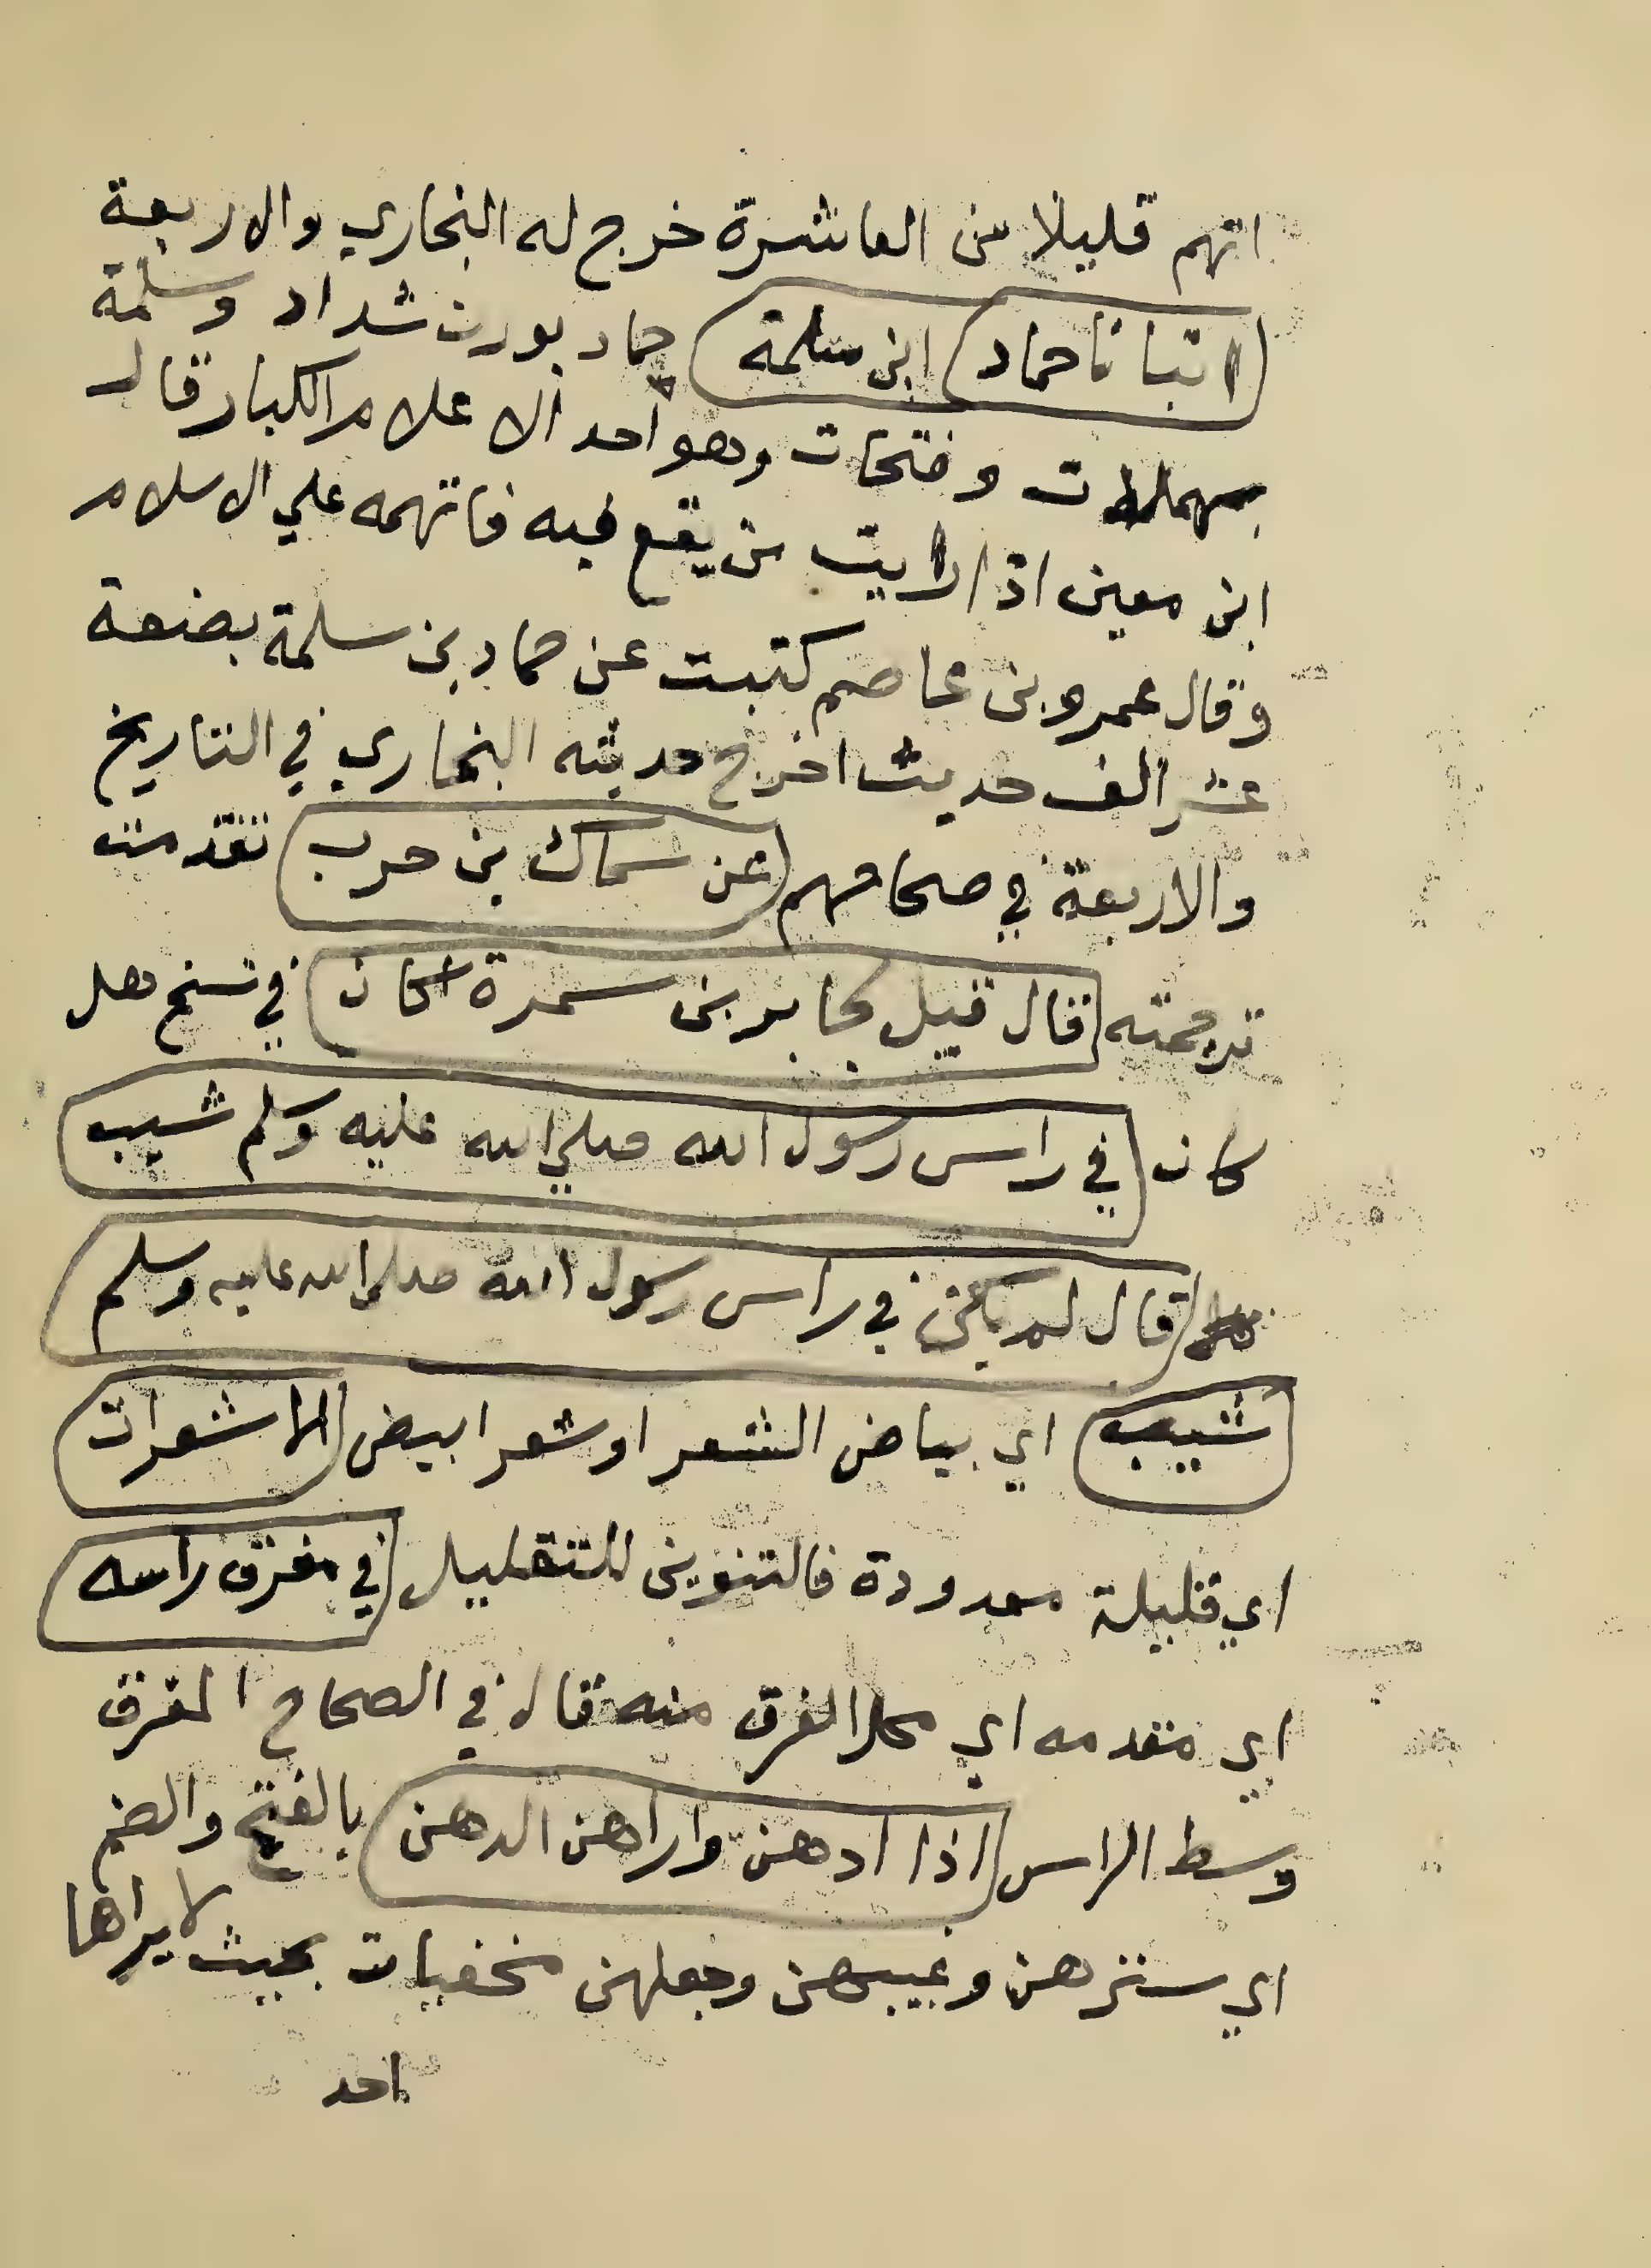 اتهم قليلا من العاشرة خرج له البخاري والاربعة
انبانا حماد ابن سلمة حماد بوزن شداد وسلمة
بمهملات وفتحات وهو احد الاعلام الكبار قال
ابن معين اذا رايت من يقع فيه فاتهمه علي الاسلام
وقال عمرو بن عاصم كتبت عن حماد بن سلمة بضعة
عشر الف حديث اخرج حديثه البخاري في التاريخ
والاربعة في صحاحهم عن سماك بن حرب تقدمت
ترجمته قال قيل لجابر بن سمرة اكان في نسخ هل
كان في راس رسول الله صلي الله عليه وسلم شيب
قال لم يكن في راس رسول الله صلي الله عليه وسلم
شيب اي بياض الشعر او شعر ابيض الا شعرات
اي قليلة معدودة فالتنوين للتقليل في مفرق راسه
اي مقدمه اي محل الفرق منه قال في الصحاح المفرق
وسط الراس اذا ادهن واراهن الدهن بالفتح والضم
اي سترهن وغيبهن وجعلهن مخفيات بحيث لا يراها
احد